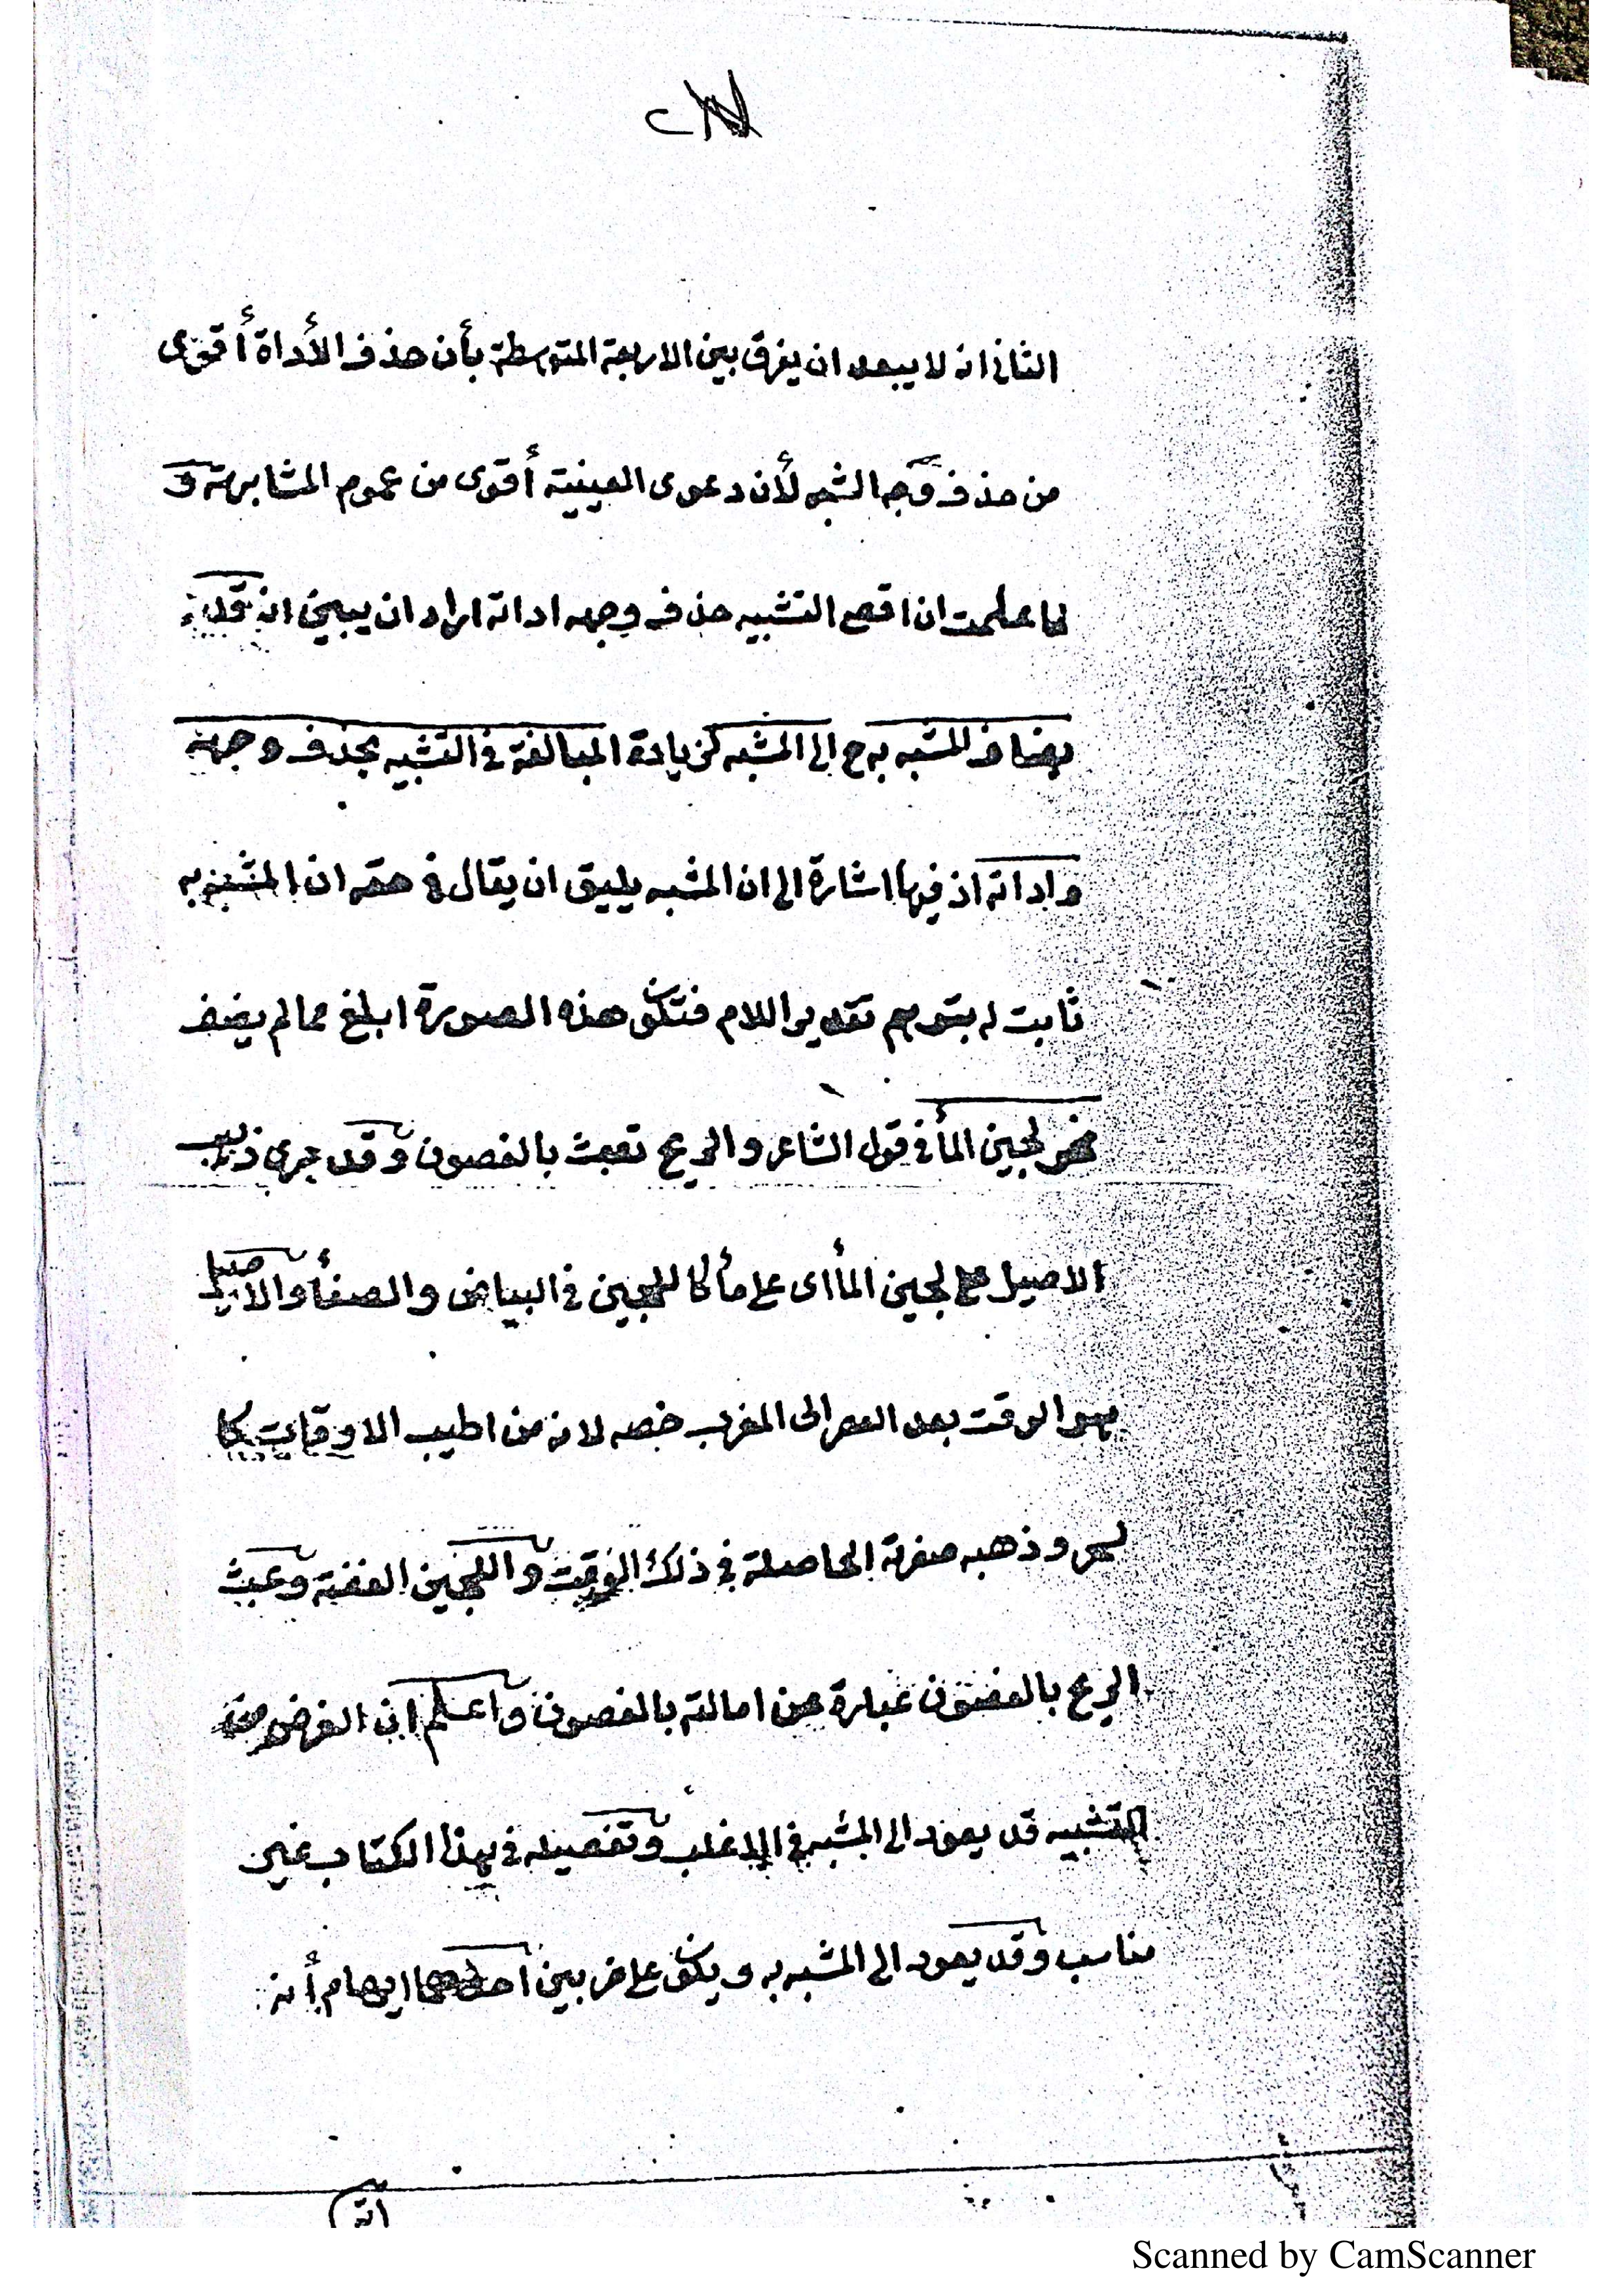 الثانى انه لا يبعد ان يفرق بين الاربعة المتوسطة بأن حذف الأداة أقوى
من حذف وجه الشبه لأن دعوى العينية أقوى من عموم المشابهة و
لما علمت ان اقوى التشبيه حذف وجهه اداته اراد ان يبين انه قد
يضاف المشبه به ح الى المشبه لزيادة المبالغة فى التشبيه بحذف وجهه
واداته اذ فيها اشارة الى ان المشبه يليق ان يقال فى حقه ان المشبه به
ثابت له بتوهم تقدير اللام فتكون هذه الصورة ابلغ مما لم يضف
نحو لجين المأ فى قول الشاعر والريح تعبث بالغصون وقد جرى ذهب
الاصيل على لجين المأ اى على مأ كاللجين فى البياض والصفأ والاصيل
هو الوقت بعد العصر الى المغرب خصه لانه من اطيب الاوقات كا
لسحر وذهبه صفرته الحاصلة فى ذلك الوقت واللجين الفضة وعبث
الريح بالغصون عبارة عن امالته بالغصون واعلم ان الغرض من
التشبيه قد يعود الى المشبه فى الاغلب وتفصيله فى هذا الكتاب غير
مناسب وقد يعود الى المشبه به ويكون على ضربين احدهما ايهام أنه
Scanned by CamScanner